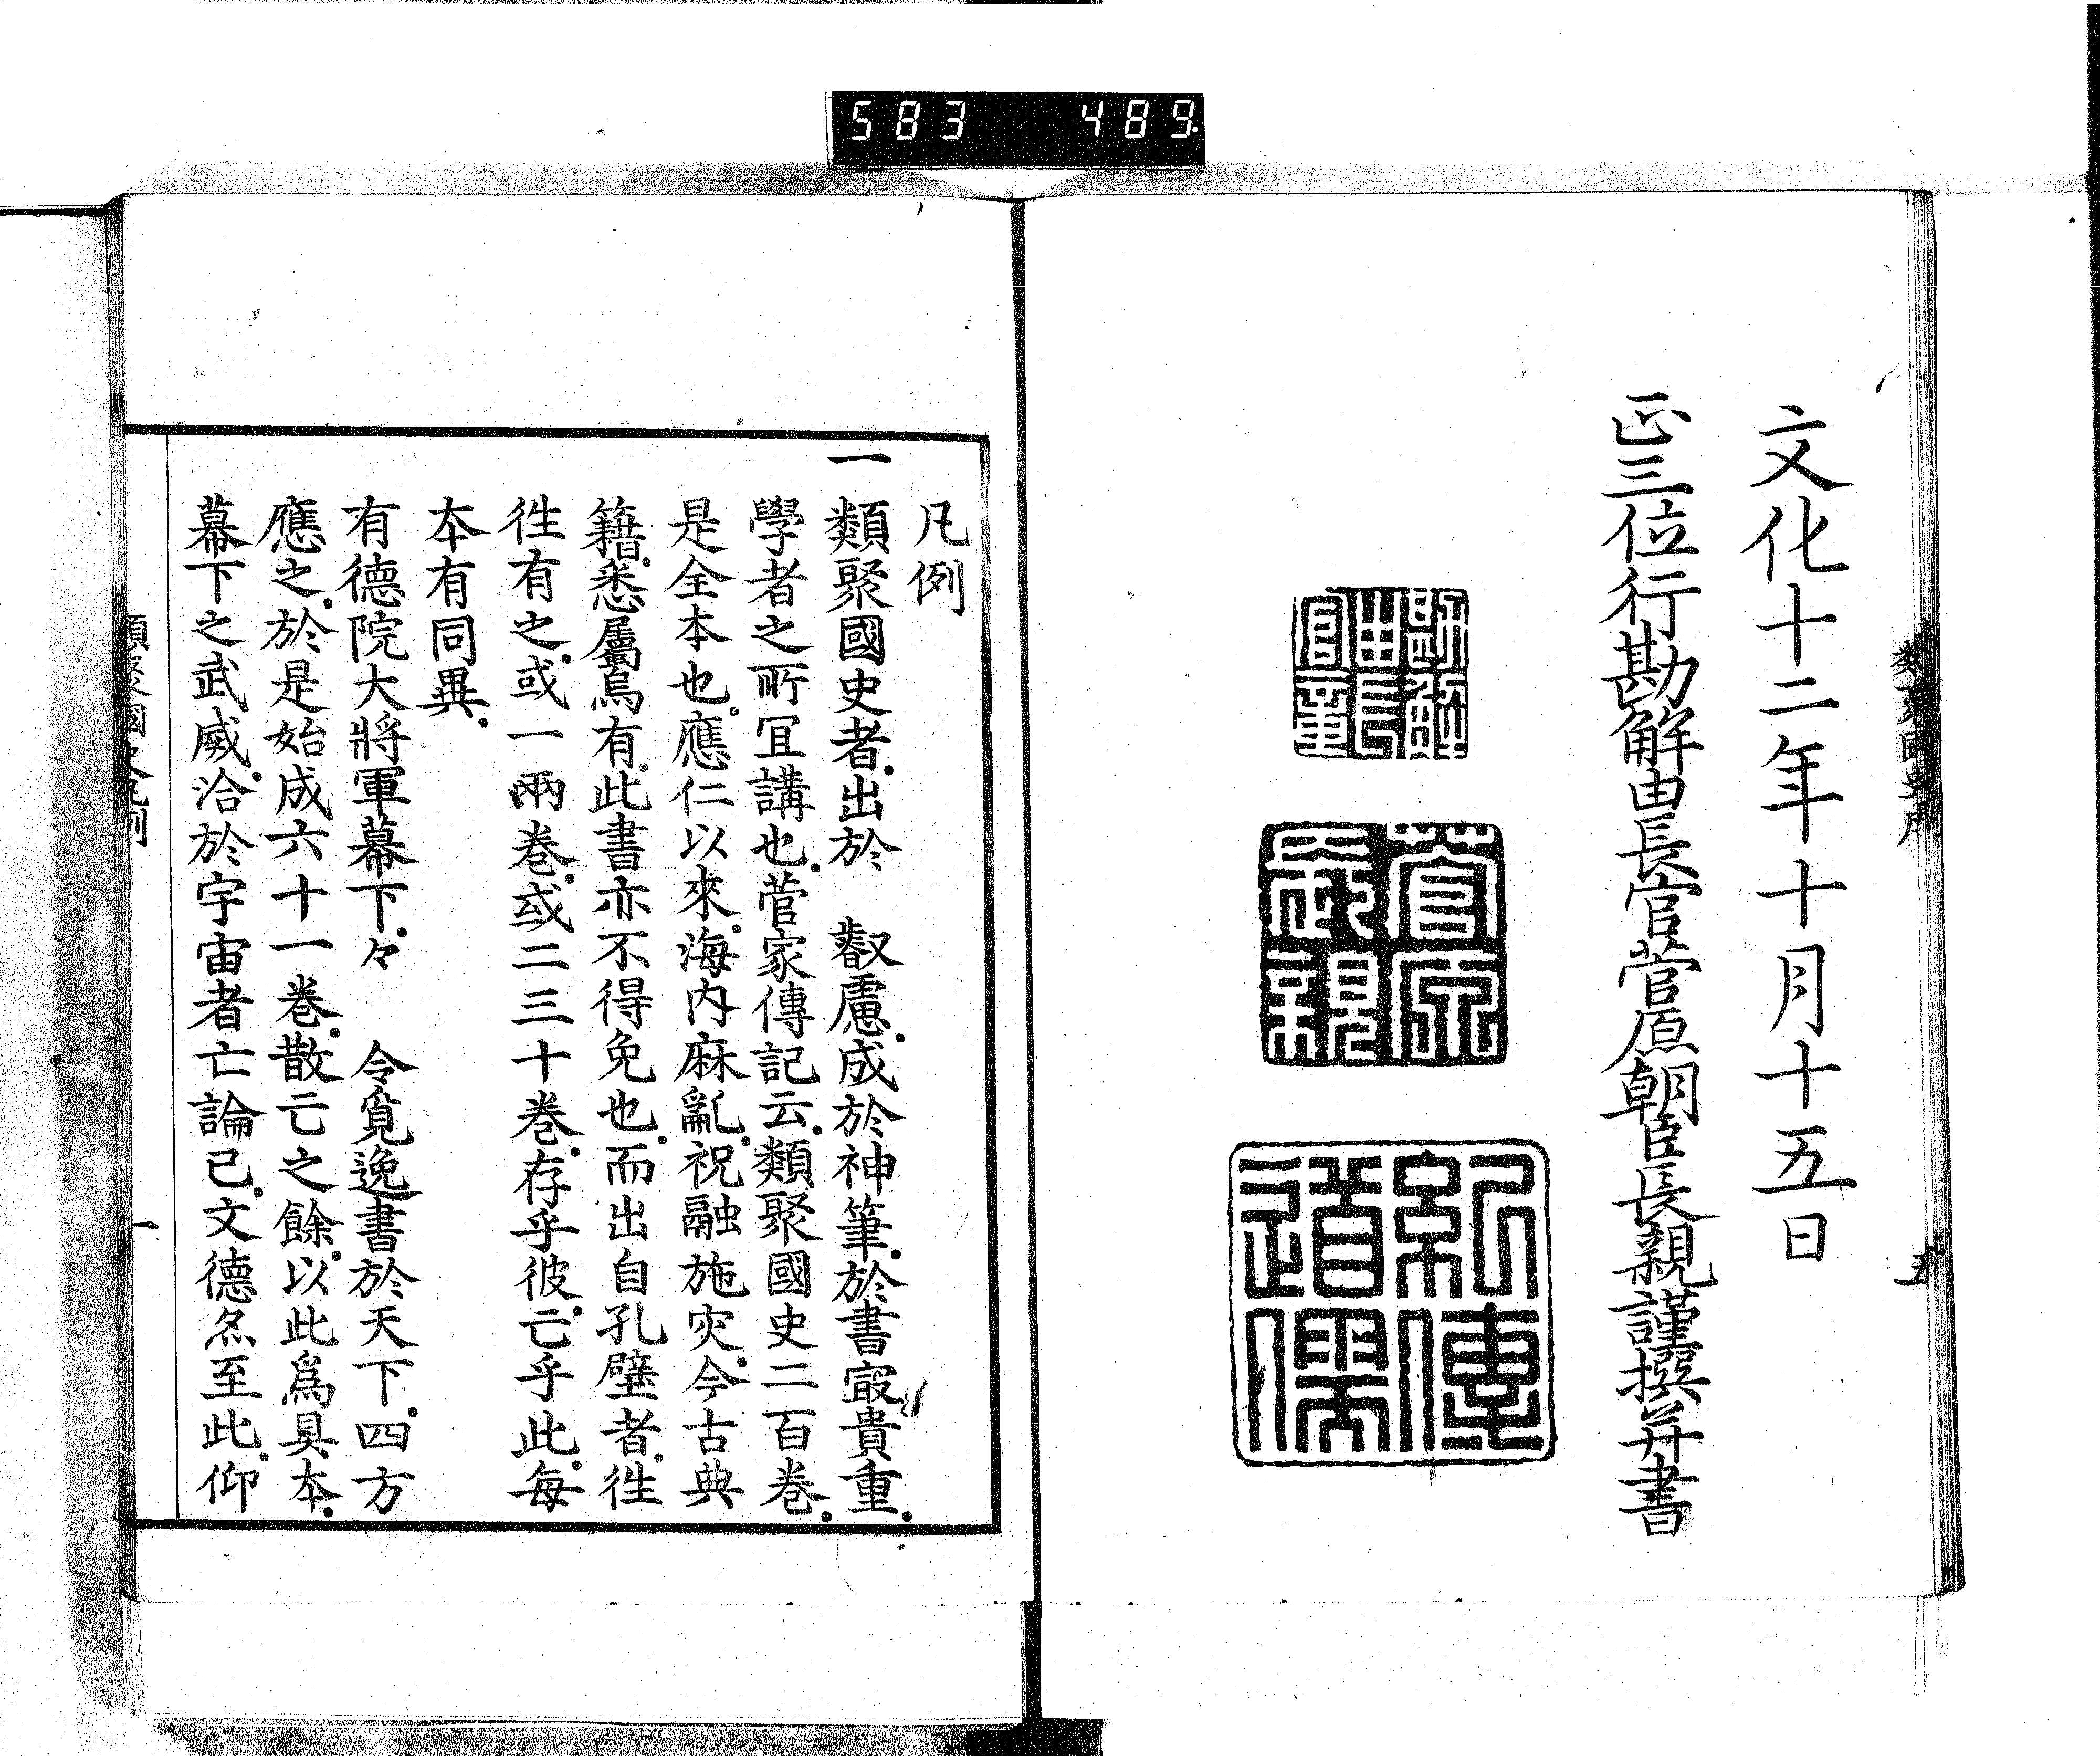 583 489
文化十二年十月十五日
正三位行勘解由長官菅原朝臣長親謹撰并書
五
菅原
長親
紀傳
道儒
凡例
一類聚國史者出於 叡慮成於神筆於書㝡貴重
學者之所宜講也菅家傳記云類聚國史二百巻
是全本也應仁以來海内麻亂祝融施灾今古典
籍悉屬烏有此書亦不得免也而出自孔壁者徃
徃有之或一兩巻或二三十巻存乎彼亡乎此每
本有同異
有德院大將軍幕下々 令覓逸書於天下四方
應之於是始成六十一巻散亡之餘以此爲具本
幕下之武威洽於宇宙者亡論已文德烝至此仰
類聚國史凡例
一